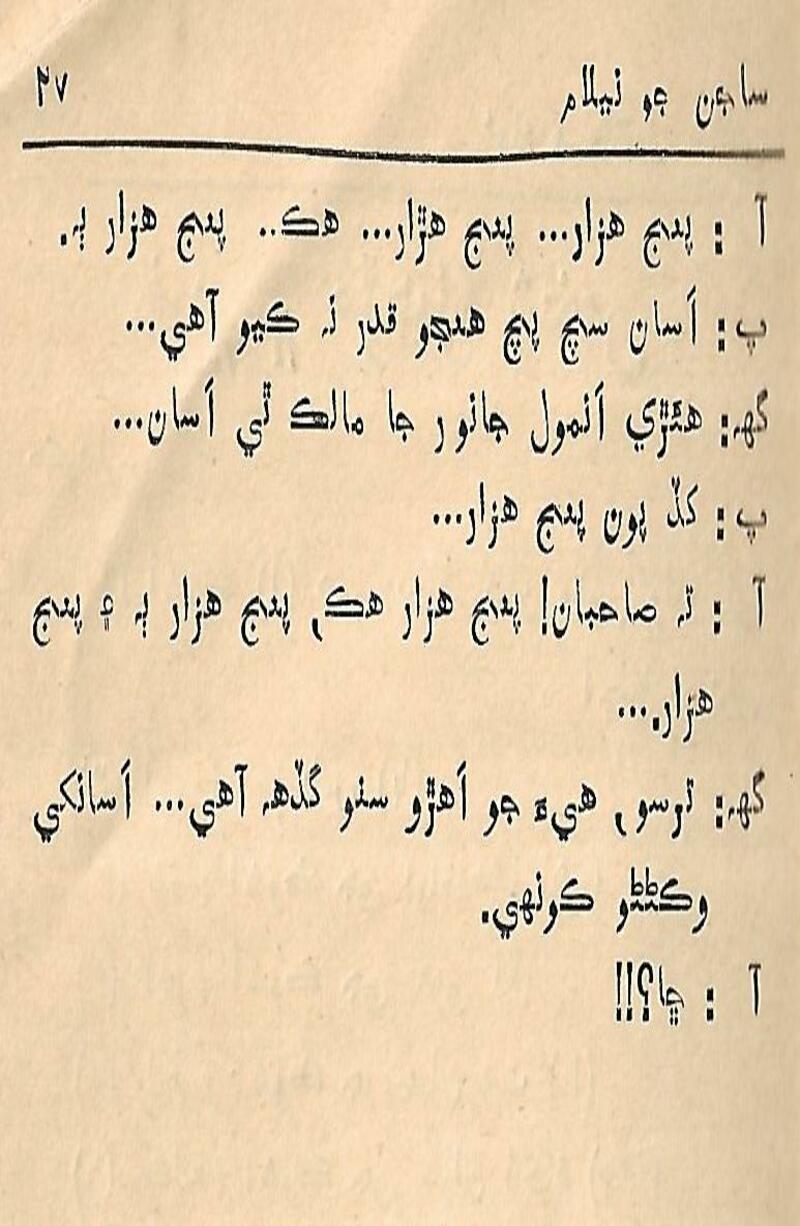 ساڄن جو نيلام ۲۷
آ : پنج هزار... پنج هڙار... هڪ.. پنج هزار ٻہ.
پ: اَسان سچ پچ هنجو قدر نہ ڪيو آهي...
گهہ: هئڙي اَنمول جانور جا مالڪ ٿي اَسان...
پ: کڏ پون پنج هزار...
آ : تہ صاحبان! پنج هزار هڪ, پنج هزار ٻہ ۽ پنج
هزار....
گهہ: ترسو, هيءَ جو اَهڙو سٺو گڏهہ آهي... اَسانکي
وڪڻڻو ڪونهي.
آ : ڇا؟!!